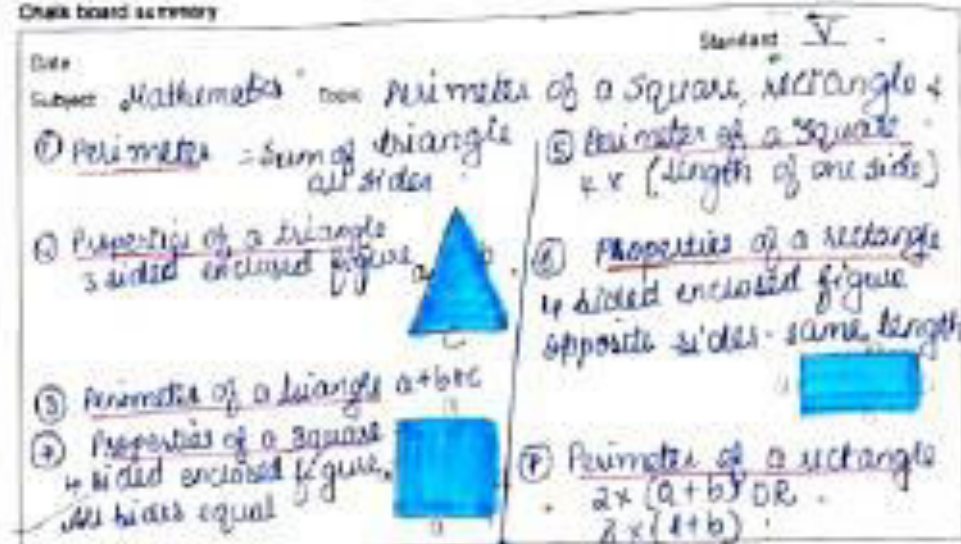 Chalk board summary
Standard V
Date
Subject Mathematics Topic Perimeter of a square, rectangle &
triangle
① Perimeter = Sum of
all sides
② Properties of a triangle
3 sided enclosed figure
a b
c
③ Perimeter of a triangle a+b+c
④ Properties of a square
4 sided enclosed figure,
All sides equal
a
a
⑤ Perimeter of a square
4 x (length of one side)
⑥ Properties of a rectangle
4 sided enclosed figure
opposite sides - same length
⑦ Perimeter of a rectangle
2 x (a + b) OR
2 x (l + b)